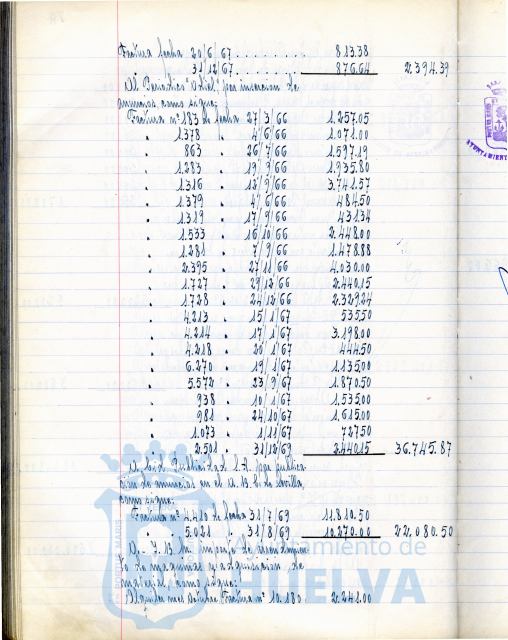 Factura fecha 20/6/67 .......... 813.38
31/12/67 ........ 876.64 2.394.39
Al Periodico "Odiel", por insercion de
anuncios, como sigue:
Factura nº 183 de fecha 27/3/66 1.257.05
" 1.378 " 4/6/66 1.071.00
" 863 " 26/7/66 1.597.19
" 1.283 " 19/9/66 1.935.80
" 1.316 " 12/9/66 3.741.57
" 1.379 " 4/6/66 484.50
" 1.319 " 17/9/66 431.34
" 1.533 " 16/10/66 2.448.00
" 1.281 " 7/9/66 1.478.88
" 2.395 " 27/11/66 4.030.00
" 1.727 " 29/12/66 2.440.15
" 1.728 " 24/12/66 2.329.24
" 4.213 " 15/1/67 535.50
" 4.214 " 17/1/67 3.198.00
" 4.218 " 20/1/67 444.50
" 6.270 " 19/1/67 1.135.00
" 5.572 " 23/9/67 1.870.50
" 938 " 10/1/67 1.535.00
" 981 " 24/10/67 1.615.00
" 1.073 " 1/11/67 727.50
" 2.501 " 31/12/69 2.440.15 36.745.87
A Cid Publicidad S.A. por publica
cion de anuncios en el A.B.C. de Sevilla,
como sigue:
Factura nº 4.410 de fecha 31/7/69 11.810.50
" 5.021 " 31/8/69 10.270.00 22.080.50
A I.B.M. importe de
de maquinas y adquisicion de
material, como sigue:
Alquiler mes Octubre Factura nº 10.180 2.241.00
Ayuntamiento de
HUELVA